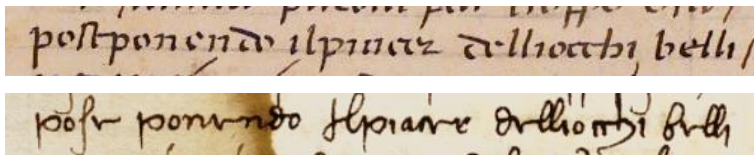 postponendo ilpiacer delliocchi belli/
pose ponendo Ilpiacere delliocchi belli